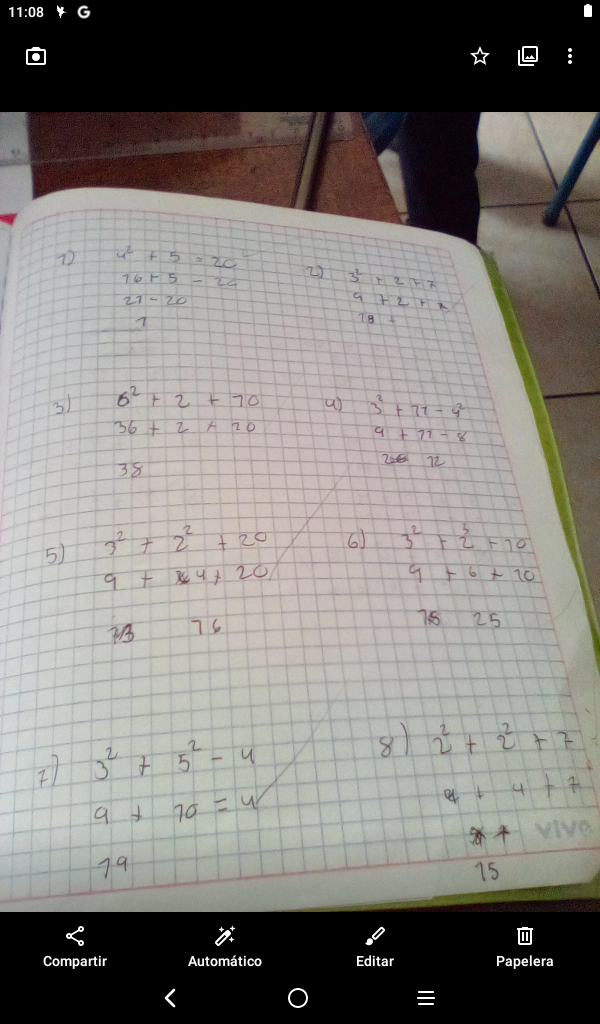 11:08 G
1) 4² + 5 = 20
16 + 5 - 20
21 - 20
1
2) 3² + 2 + 7
9 + 2 + 7
18
3) 6² + 2 + 10
36 + 2 + 10
38
4) 3² + 11 - 4²
9 + 11 - 8
12
5) 3² + 2² + 20
9 + 4 + 20
13 16
6) 3² + 2³ + 10
9 + 6 + 10
15 25
7) 3² + 5² - 4
9 + 10 = 4
19
8) 2² + 2² + 7
4 + 4 + 7
15
vivo
Compartir Automático Editar Papelera